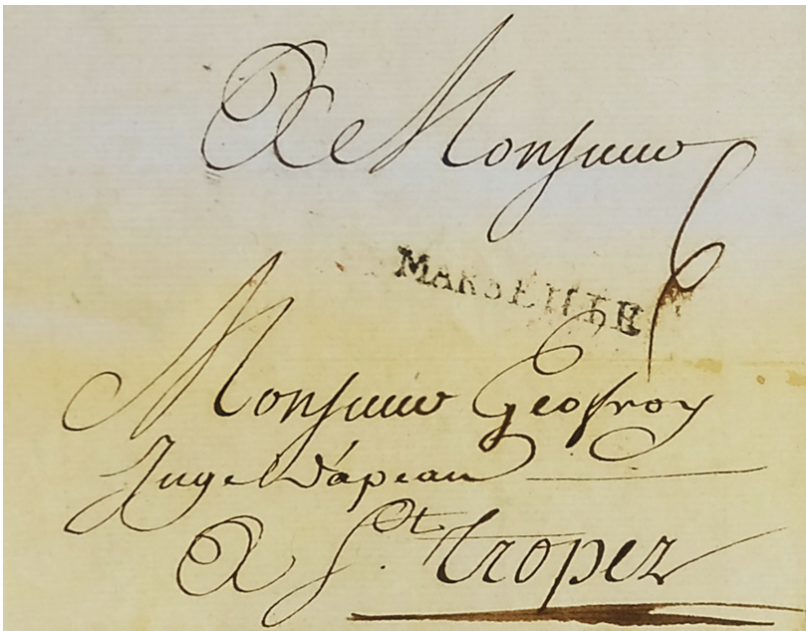 A Monsieur
MARSEILLE
Monsieur Geoffroy
Juge d'apeau
A St. Tropez